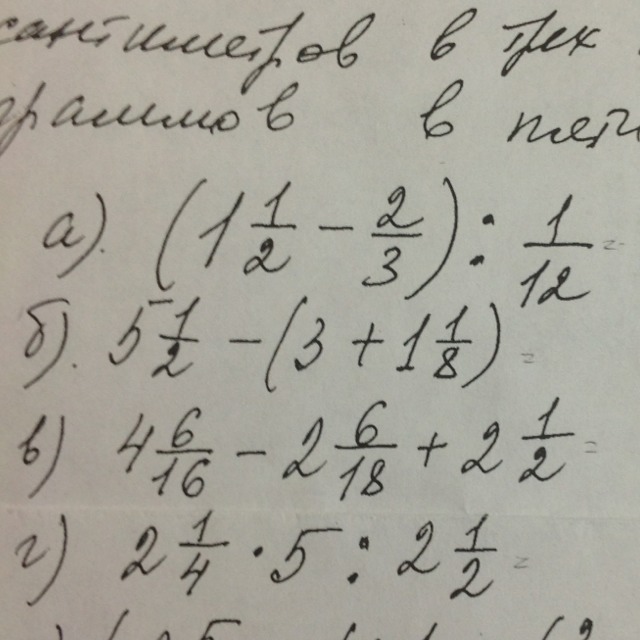 сантиметров в трех
граммов в
а). (1 1/2 - 2/3) : 1/12 =
б). 5 1/2 - (3 + 1 1/8) =
в) 4 6/16 - 2 6/18 + 2 1/2 =
г) 2 1/4 · 5 : 2 1/2 =